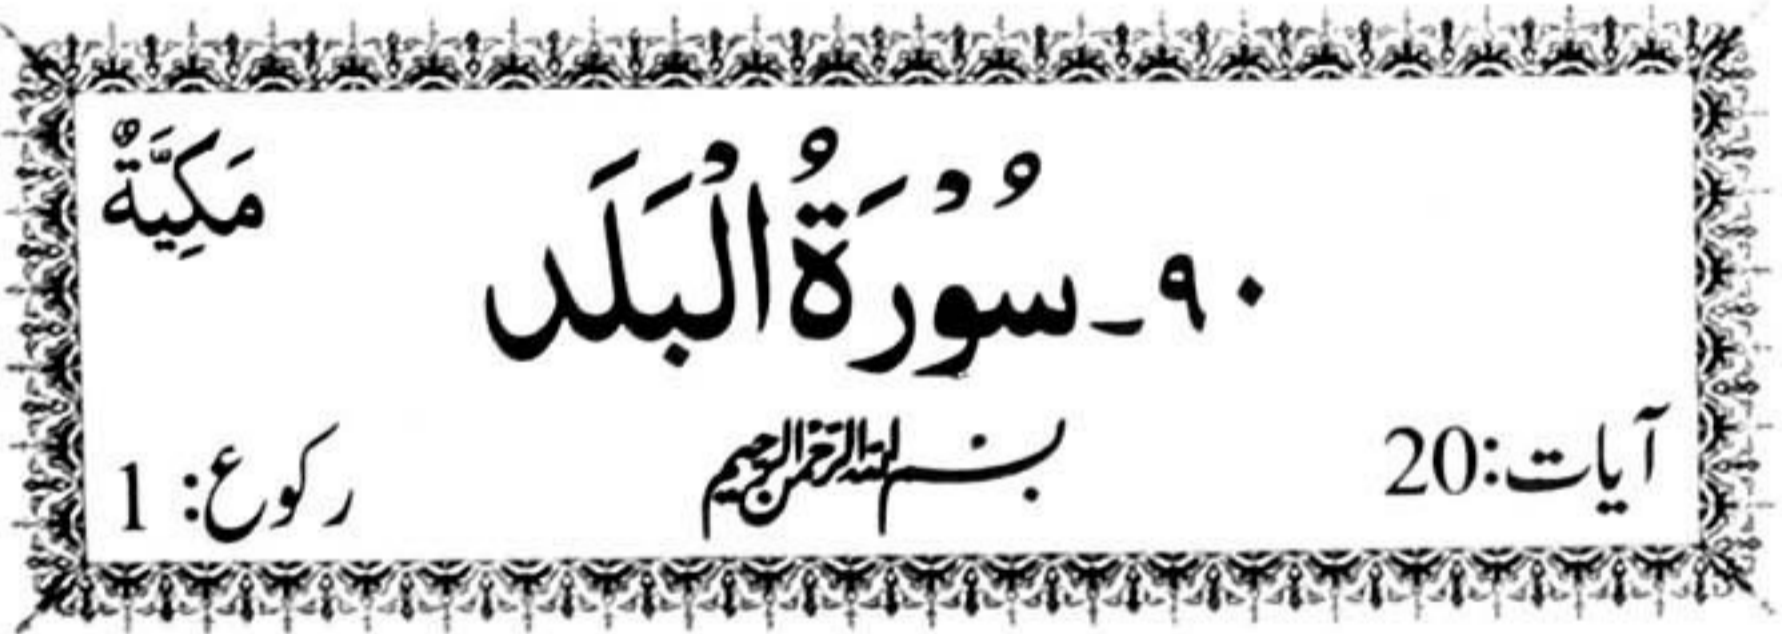 مَكِيَّةٌ
٩٠ـ سُوْرَةُ الْبَلَد
آیات:20 بسم الله الرحمن الرحيم رکوع: 1